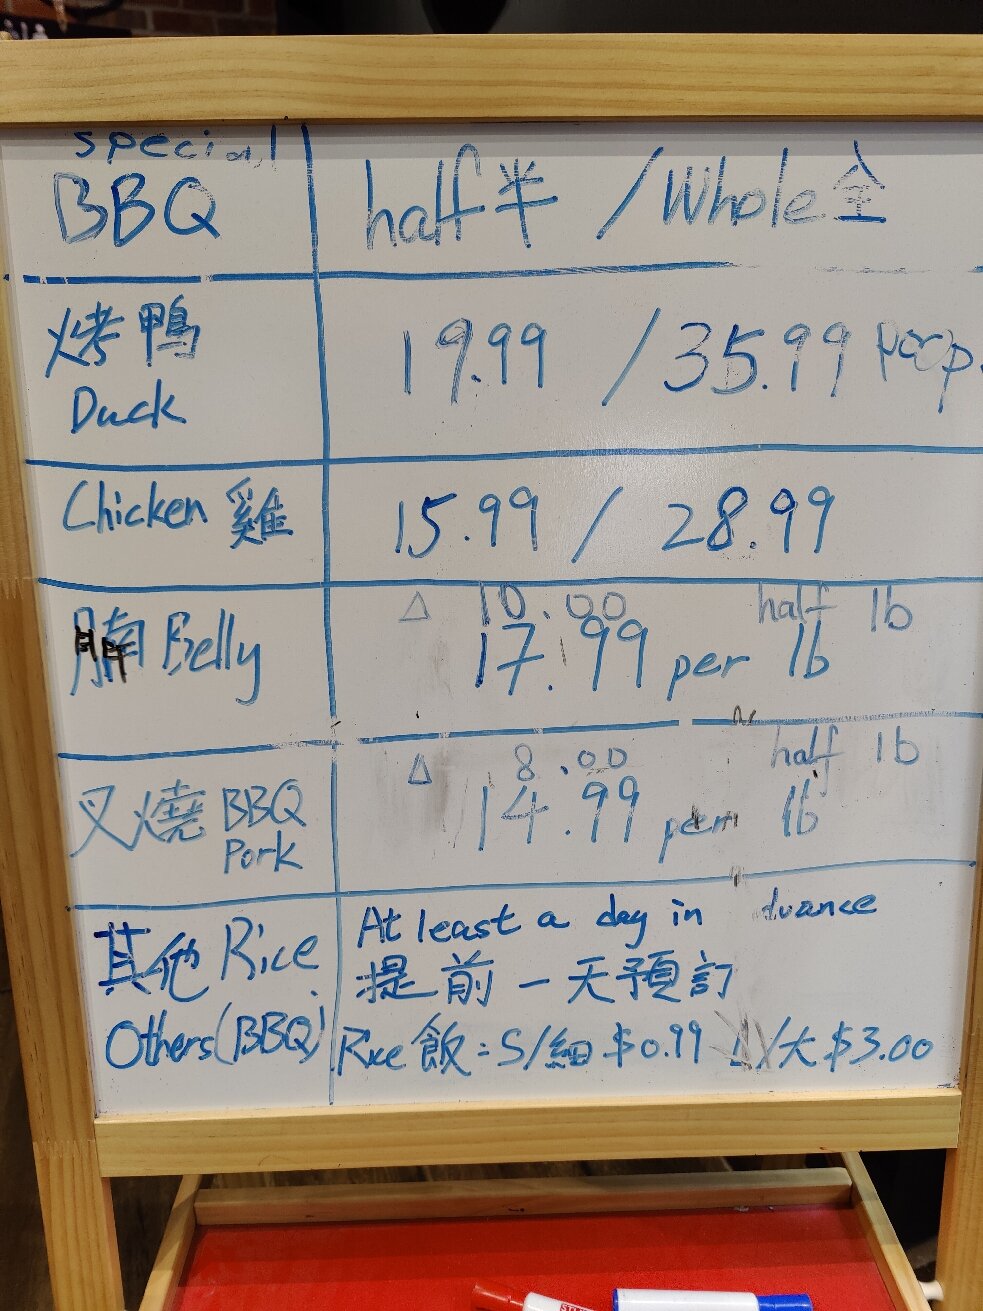 special
BBQ half半 / Whole全
烤鴨
Duck
19.99 / 35.99
Chicken 雞 15.99 / 28.99
△ 10.00 half lb
腩 Belly 17.99 per lb
△ 8.00 half lb
叉燒 BBQ
Pork
14.99 per lb
其他 Rice
Others (BBQ)
At least a day in
提前一天預訂
Rice 飯: S/細 $0.99 L/大 $3.00